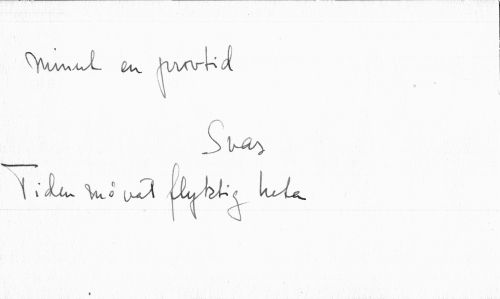 minut en provtid
Svar
Tiden må väl flyktig heta